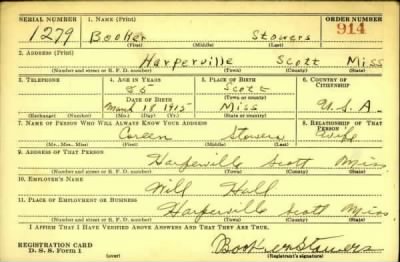 SERIAL NUMBER 1. NAME (Print) ORDER NUMBER
1279 Booker Stowers 914
(First) (Middle) (Last)
2. ADDRESS (Print)
Harperville Scott Miss
(Number and street or R. F. D. number) (Town) (County) (State)
3. TELEPHONE 4. AGE IN YEARS 5. PLACE OF BIRTH 6. COUNTRY OF CITIZENSHIP
25 Scott
DATE OF BIRTH (Town or county)
March 15 1915 Miss U.S.A.
(Exchange) (Number) (Mo.) (Day) (Yr.) (State or country)
7. NAME OF PERSON WHO WILL ALWAYS KNOW YOUR ADDRESS 8. RELATIONSHIP OF THAT PERSON
Stowers wife
(Mr., Mrs., Miss) (First) (Middle) (Last)
9. ADDRESS OF THAT PERSON
Harperville Scott Miss
(Number and street or R. F. D. number) (Town) (County) (State)
10. EMPLOYER'S NAME
Will Hall
11. PLACE OF EMPLOYMENT OR BUSINESS
Harperville Scott Miss
(Number and street or R. F. D. number) (Town) (County) (State)
I AFFIRM THAT I HAVE VERIFIED ABOVE ANSWERS AND THAT THEY ARE TRUE.
REGISTRATION CARD
D. S. S. Form 1 (over) Booker Stowers
(Registrant's signature)